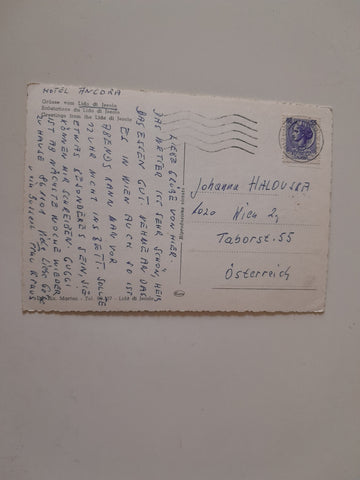 HOTEL ANCORA
Grüsse vom Lido di Jesolo
Salutations du Lido di Jesolo
Greetings from the Lido di Jesolo
LIEBE GRÜßE VON HIER.
DAS WETTER IST SEHR SCHÖN, HEIß
DAS ESSEN GUT NEHME AN DAß
ES IN WIEN AUCH SO IST
ABENDS KANN MAN VOR
12 UHR NICHT INS BETT. SOLLTE
ETWAS BESONDERES SEIN, SIE
KÖNNEN MIR SCHREIBEN.
IST AB NÄCHSTE WOCHE WIEDER
ZU HAUSE
LIEBE GRÜßE
FRAU KRAUS
Johanna HALOUSKA
1020 Wien 2,
Taborst. 55
Österreich
Lido di Jesolo